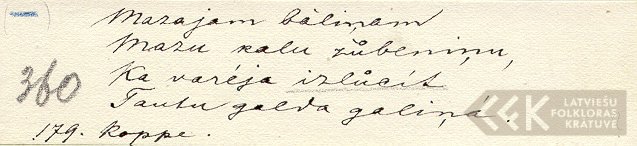 Mazajam bāliņam
Mazu kalu zůbeniņu,
360
Ka varēja izlůcīt
Tautu galda galiņâ.
179. Koppe.
LATVIEŠU
FOLKLORAS
KRĀTUVE